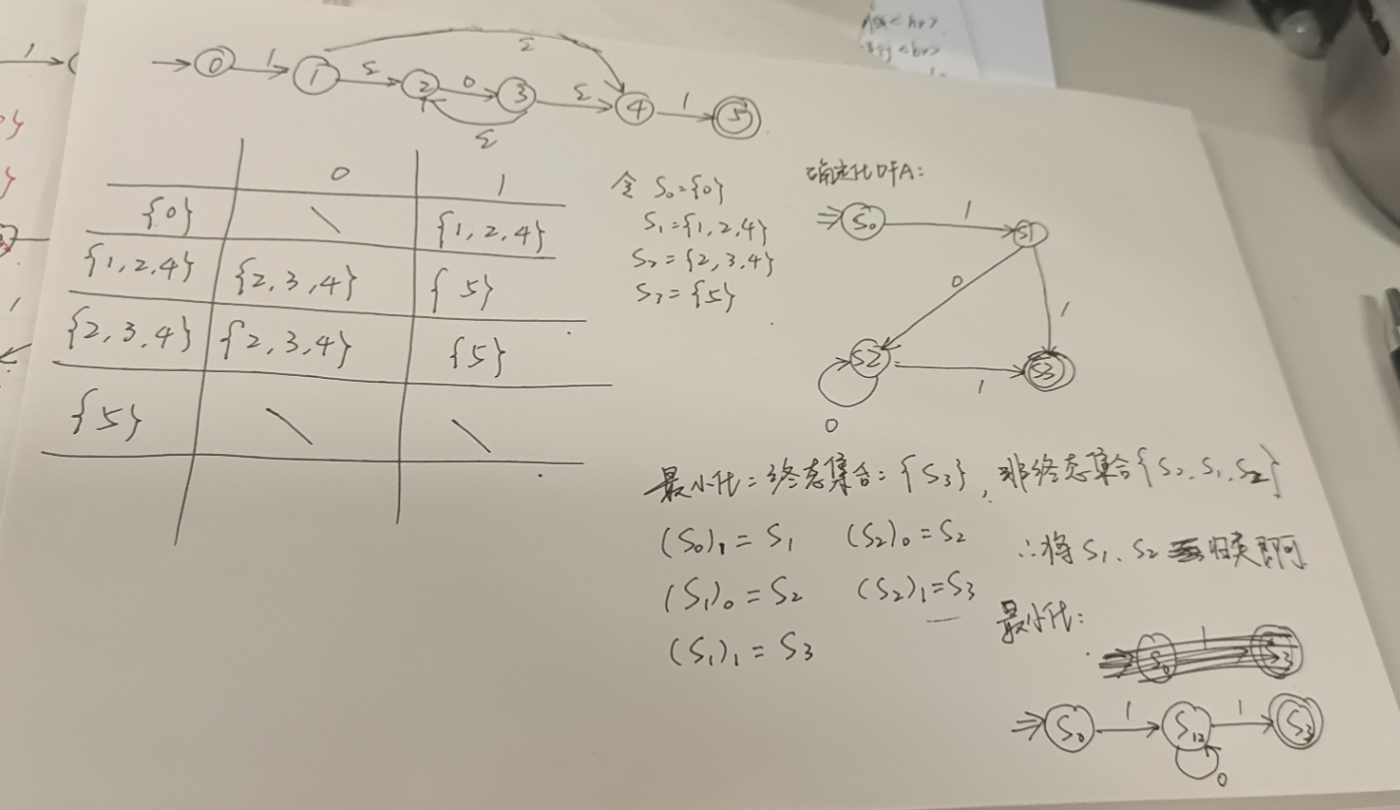 0 1 1 ε 2 0 3 ε 4 1 5
ε
ε
0 1
{0} \ {1,2,4}
{1,2,4} {2,3,4} {5}
{2,3,4} {2,3,4} {5}
{5} \ \
令 S₀={0}
S₁={1,2,4}
S₂={2,3,4}
S₃={5}
确定化DFA:
S₀ 1 S1
0 1
S2 1 S3
0
最小化:终态集合:{S₃},非终态集合{S₂、S₁、S₂}
(S₀)₁=S₁ (S₂)₀=S₂
(S₁)₀=S₂ (S₂)₁=S₃
(S₁)₁=S₃
∴将S₁、S₂归类即可
最小化:
S₀ 1 S₁₂ 1 S₃
0